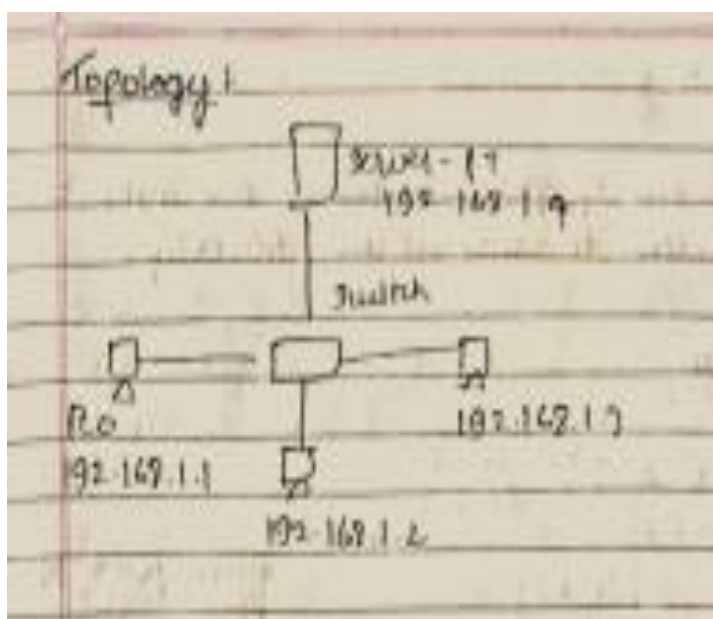 Topology 1
Server-PT
192.168.1.9
Switch
192.168.1.3
192.168.1.1
192.168.1.2